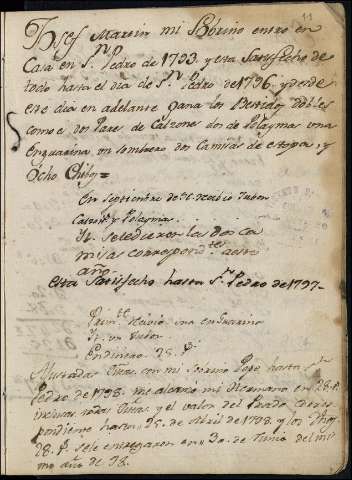 11
Josef Martin mi sobrino entro en
Casa en Sn. Pedro de 1793. y esta satisfecho de
todo hasta el dia de Sn. Pedro de 1796. y desde
este dia en adelante gana los
como e dos Pares de Calzones dos de Polaymas una
Anguarina un sombrero dos Camisas de estopa, y
Ocho
En septiembre de
Calzon y Polaymas.
Yt. se le dieron las dos ca
misas correspondtes. a este
año.
esta satisfecho hasta Sn. Pedro de 1797.
una Anguarina
Yt. un
En dinero 28.
Ajustadas Ctas. con mi sobrino Pepe hasta
Pedro de 1798. me alcanzo mi Hermano en 28.
inclusas todas Ctas. y el valor del Prado corres
pondiente hasta 25. de Abril de 1798. y los
28. se le entregaron en 30. de Junio del mis
mo año de 98.